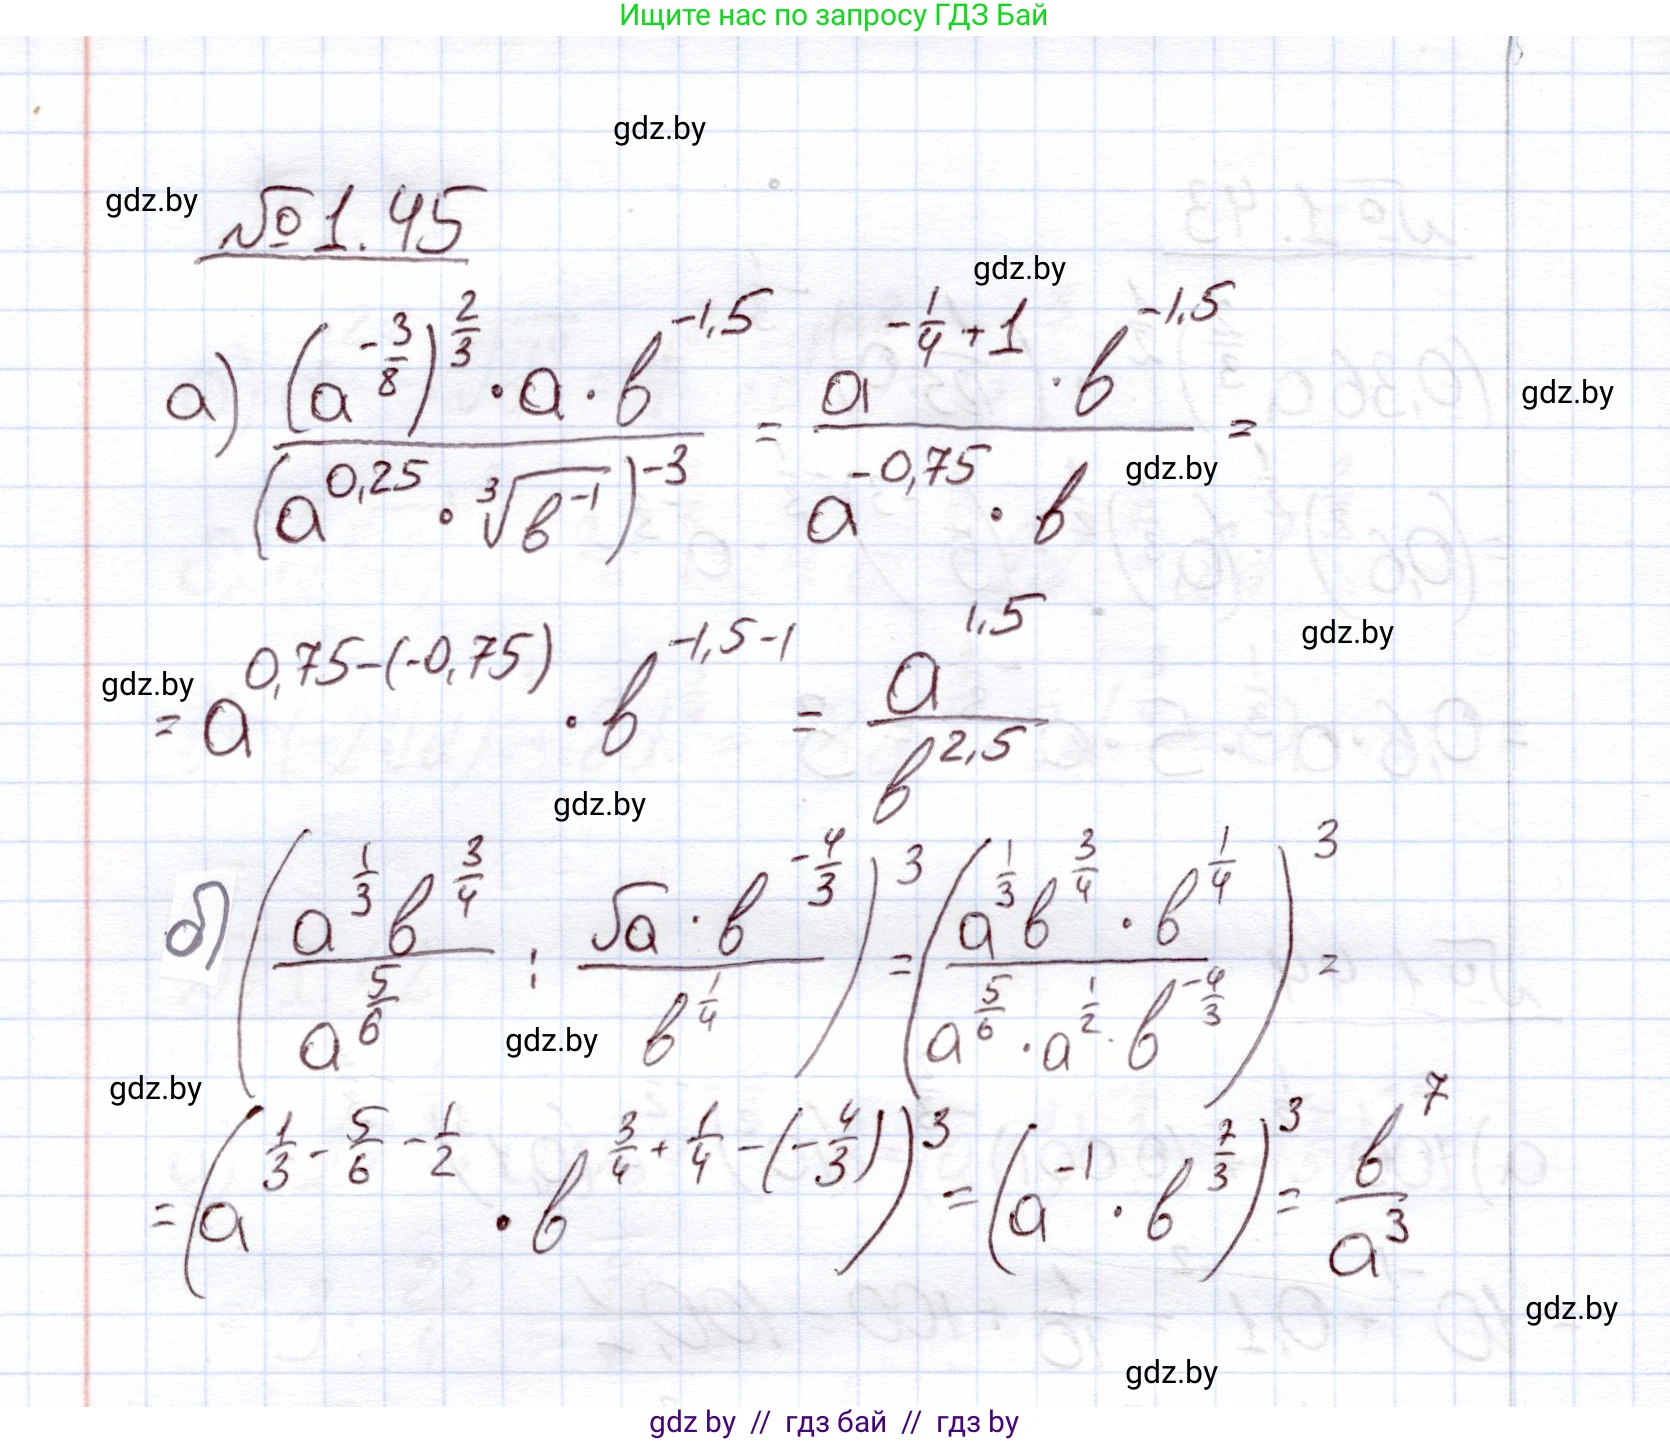 Ищите нас по запросу ГДЗ Бай
gdz.by
gdz.by
№ 1.45
gdz.by
а) ((a^(-3/8))^(2/3) · a · b^(-1,5)) / (a^(0,25) · ∛(b^(-1)))^(-3) = (a^(-1/4+1) · b^(-1,5)) / (a^(-0,75) · b) =
gdz.by
gdz.by
gdz.by
gdz.by
= a^(0,75-(-0,75)) · b^(-1,5-1) = a^(1,5) / b^(2,5)
gdz.by
б) ((a^(1/3) b^(3/4)) / a^(5/6) : (√a · b^(-4/3)) / b^(1/4))^3 = ((a^(1/3) b^(3/4) · b^(1/4)) / (a^(5/6) · a^(1/2) · b^(-4/3)))^3 =
gdz.by
gdz.by
= (a^(1/3 - 5/6 - 1/2) · b^(3/4 + 1/4 - (-4/3)))^3 = (a^(-1) · b^(7/3))^3 = b^7 / a^3
gdz.by
gdz.by
gdz by // гдз бай // гдз by